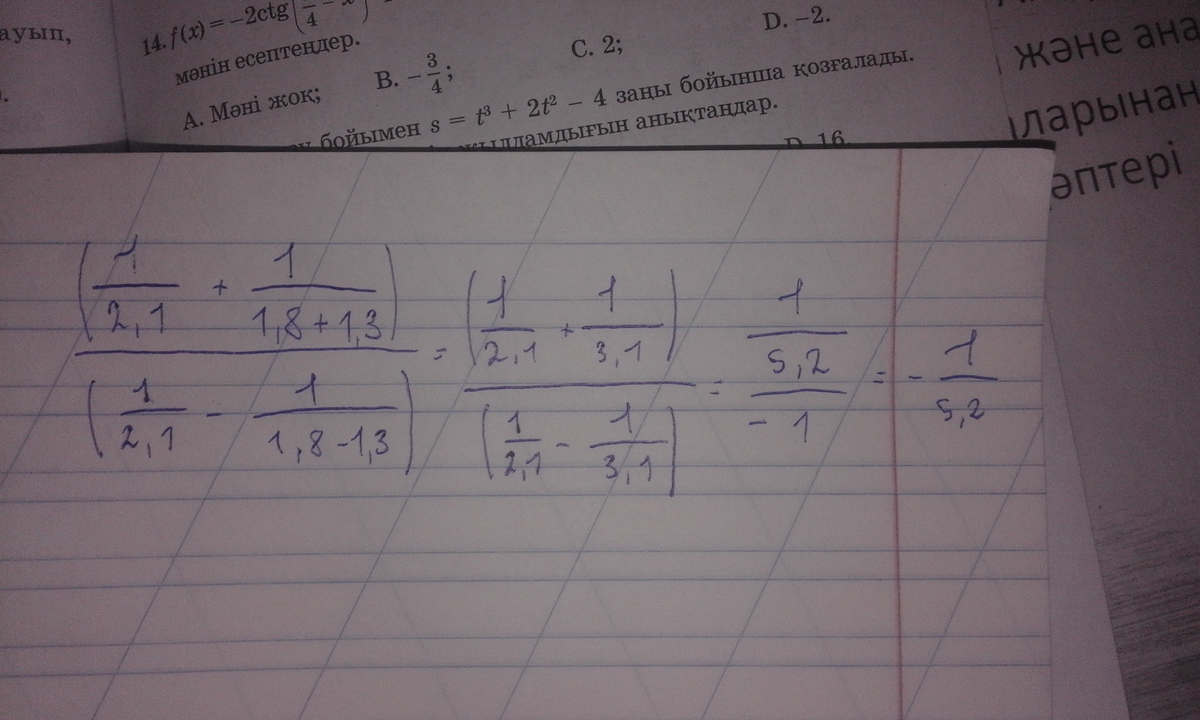 ауып,
14. f(x) = −2ctg(
мәнін есептеңдер.
А. Мәні жоқ; В. −3/4; С. 2; D. −2.
бойымен s = t³ + 2t² − 4 заңы бойынша қозғалады.
анықтаңдар.
D. 16.
және ана
ларынан
әптері
(1/2,1 + 1/(1,8+1,3)) / (1/2,1 − 1/(1,8−1,3)) = (1/2,1 + 1/3,1) / (1/2,1 − 1/3,1) = (1/5,2) / (−1) = −1/5,2